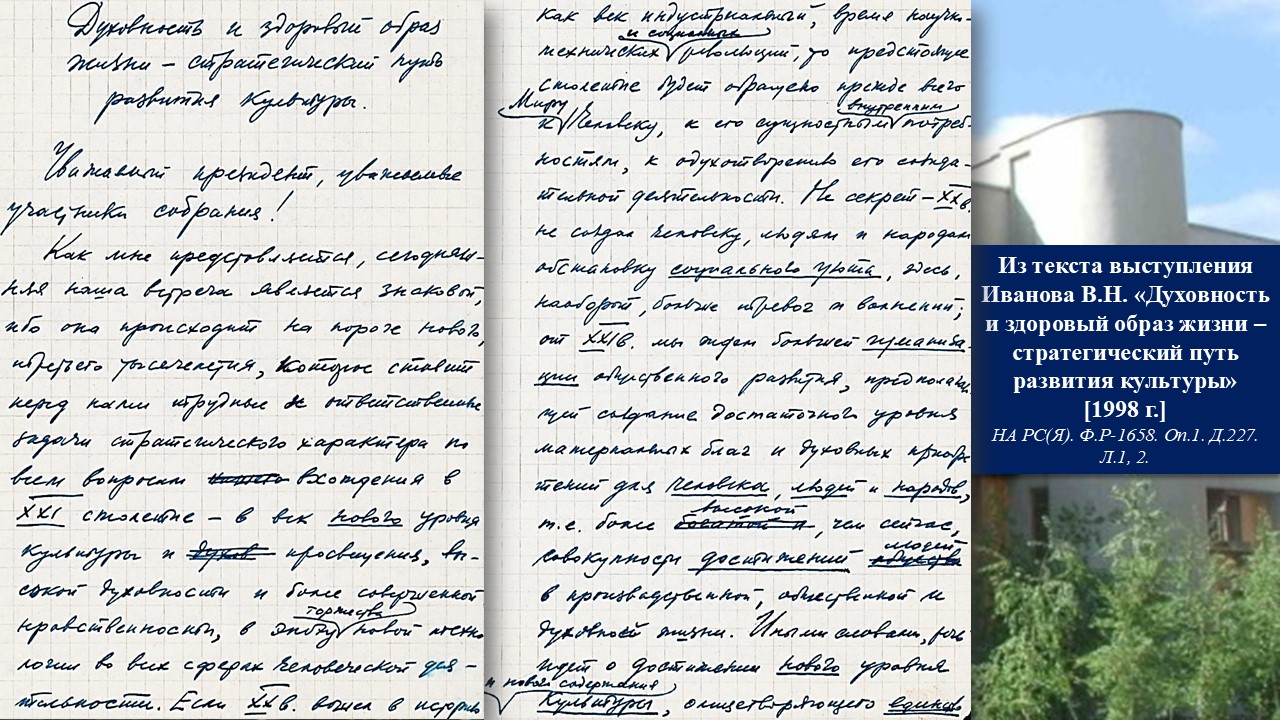 Духовность и здоровый образ
жизни – стратегический путь
развития культуры.
Уважаемый президент, уважаемые
участники собрания!
Как мне представляется, сегодняш-
няя наша встреча является знаковой,
ибо она происходит на пороге нового,
третьего тысячелетия, которое ставит
перед нами трудные и ответственные
задачи стратегического характера по
всем вопросам вхождения в
XXI столетие – в век нового уровня
культуры и просвещения, вы-
сокой духовности и более совершенной
торжества
нравственности, в эпоху новой техно
логии во всех сферах человеческой дея-
тельности. Если XX в. вошел в историю
как век индустриальный, время научно-
и социальных
технических революций, то предстоящее
столетие будет обращено прежде всего
Миру внутренним
к Человеку, к его сущностным потреб-
ностям, к одухотворению его созида-
тельной деятельности. Не секрет – XX в.
не создал человеку, людям и народам
обстановку социального уюта, здесь,
наоборот, больше тревог и волнений;
от XXI в. мы ждем большей гуманиза-
ции общественного развития, предполагаю
щей создание достаточного уровня
материальных благ и духовных приобре
тений для человека, людей и народов,
высокой
т.е. более богатой и, чем сейчас,
людей
совокупности достижений общества
в производственной, общественной и
духовной жизни. Иными словами, речь
идет о достижении нового уровня
и новой содержания
Культуры, олицетворяющего единство
Из текста выступления
Иванова В.Н. «Духовность
и здоровый образ жизни –
стратегический путь
развития культуры»
[1998 г.]
НА РС(Я). Ф.Р-1658. Оп.1. Д.227.
Л.1, 2.